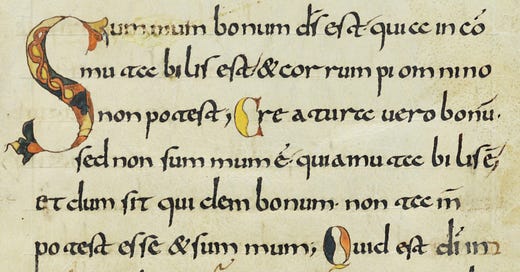 Summum bonum d̄s est quia incō
mutabilis est & corrumpi omnino
non potest; Creatura vero bonū·
sed non summum ē· quia mutabilis ē;
et dum sit quidem bonum· non tam̄
potest esse & summum; Quid est dī in